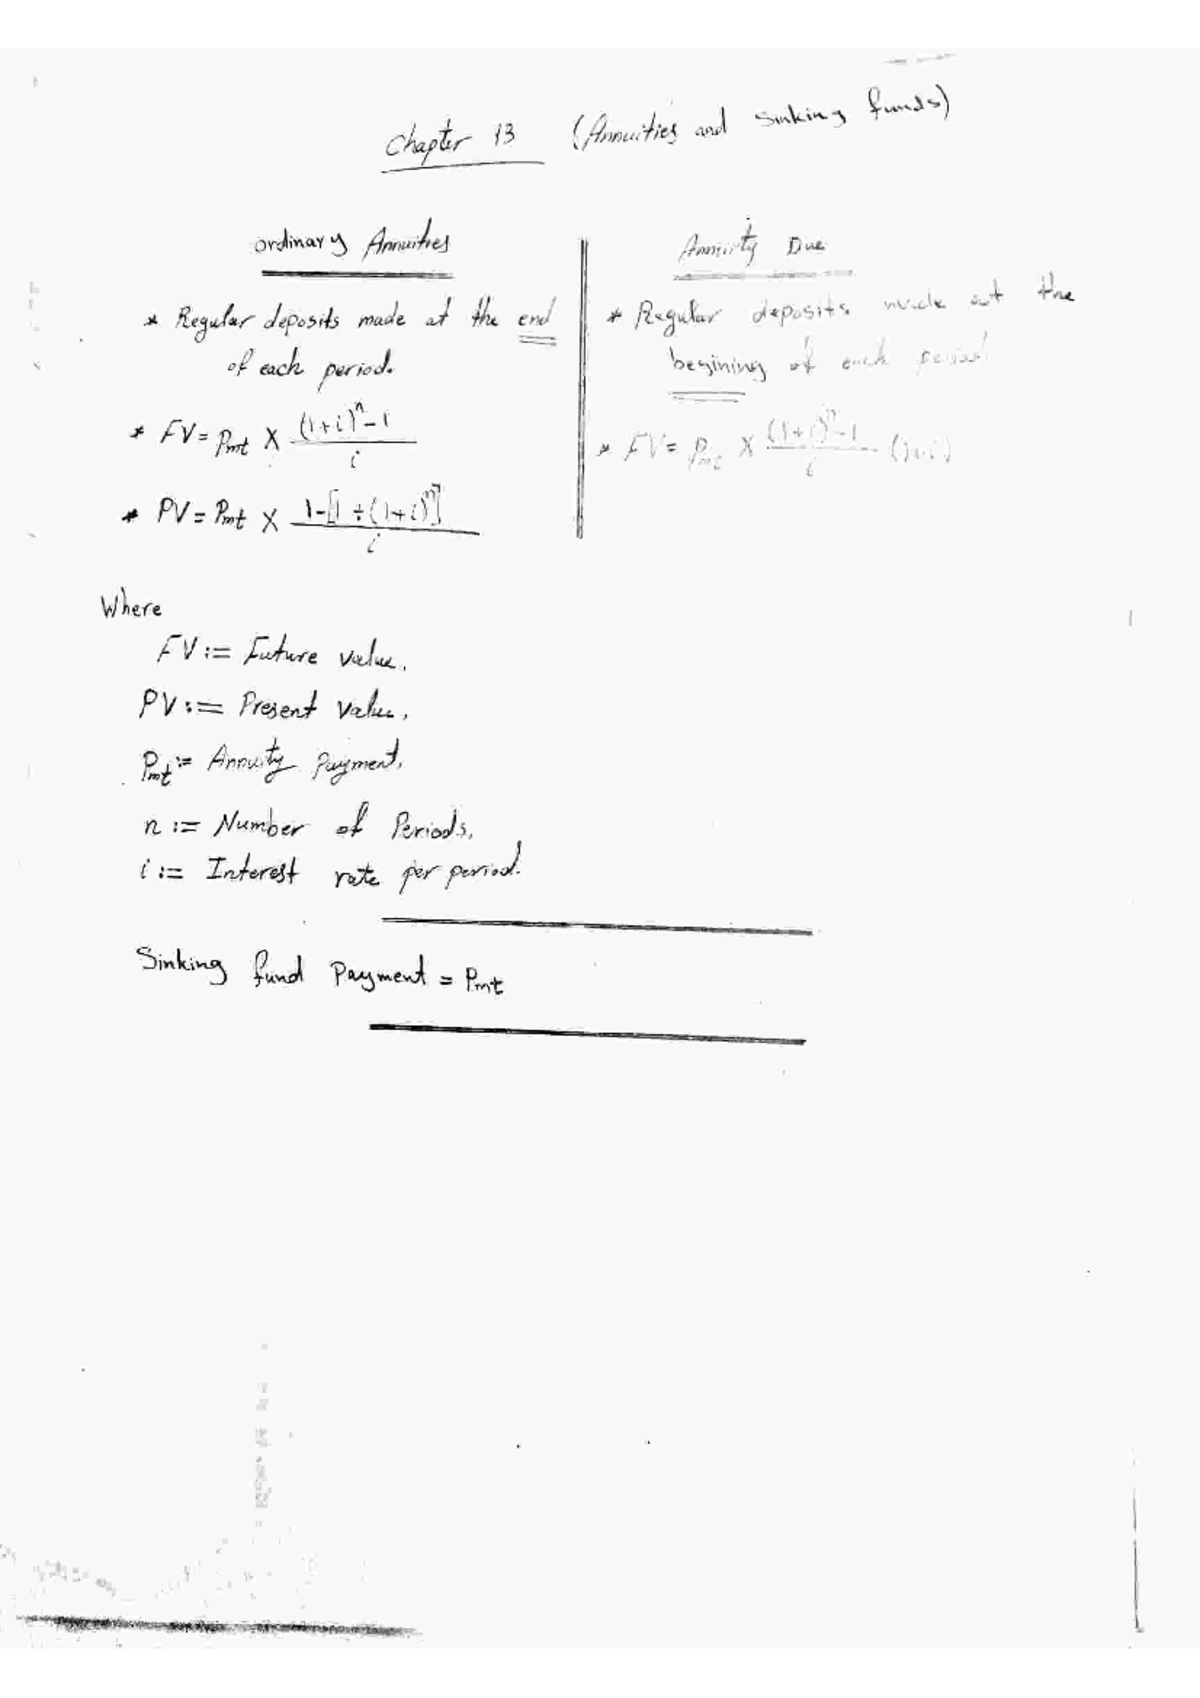 Chapter 13 (Annuities and Sinking funds)
ordinary Annuities
* Regular deposits made at the end
of each period.
* FV = Pmt X (1+i)^n - 1 / i
* PV = Pmt X 1-[1 ÷ (1+i)^n] / i
Annuity Due
* Regular deposits made at the
begining of each period
* FV = Pmt X (1+i)^n - 1 / i (1+i)
Where
FV := Future value,
PV := Present value,
Pmt := Annuity Payment,
n := Number of Periods,
i := Interest rate per period.
Sinking fund Payment = Pmt